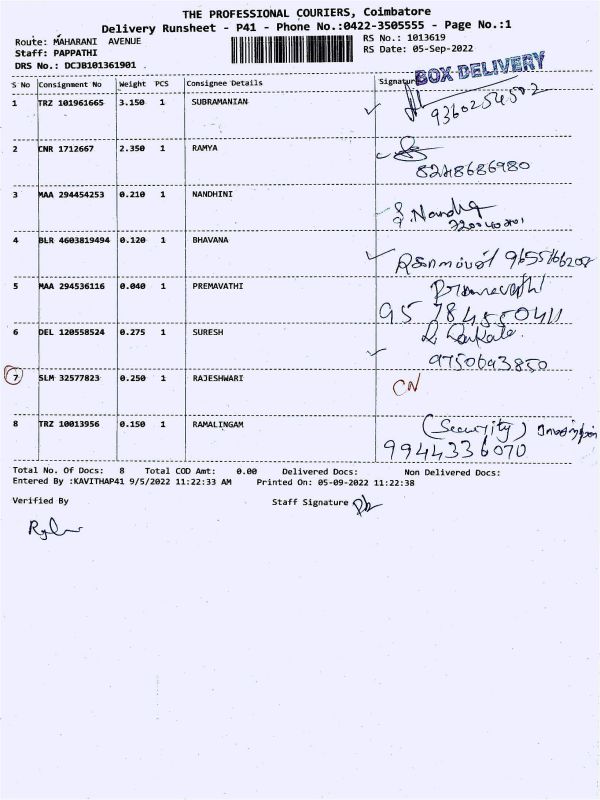 THE PROFESSIONAL COURIERS, Coimbatore
Delivery Runsheet - P41 - Phone No.:0422-3505555 - Page No.:1
Route: MAHARANI AVENUE
RS No.: 1013619
Staff: PAPPATHI
RS Date: 05-Sep-2022
DRS No.: DCJB101361901
BOX DELIVERY
S No Consignment No Weight PCS Consignee Details Signature
1 TRZ 101961665 3.150 1 SUBRAMANIAN
9360254502
2 CNR 1712667 2.350 1 RAMYA
8248686980
3 MAA 294454253 0.210 1 NANDHINI
4 BLR 4603819494 0.120 1 BHAVANA
5 MAA 294536116 0.040 1 PREMAVATHI
Premavathi
6 DEL 120558524 0.275 1 SURESH
9750693850
7 SLM 32577823 0.250 1 RAJESHWARI CN
8 TRZ 10013956 0.150 1 RAMALINGAM (Security)
9944336070
Total No. Of Docs: 8 Total COD Amt: 0.00 Delivered Docs: Non Delivered Docs:
Entered By :KAVITHAP41 9/5/2022 11:22:33 AM Printed On: 05-09-2022 11:22:38
Verified By Staff Signature